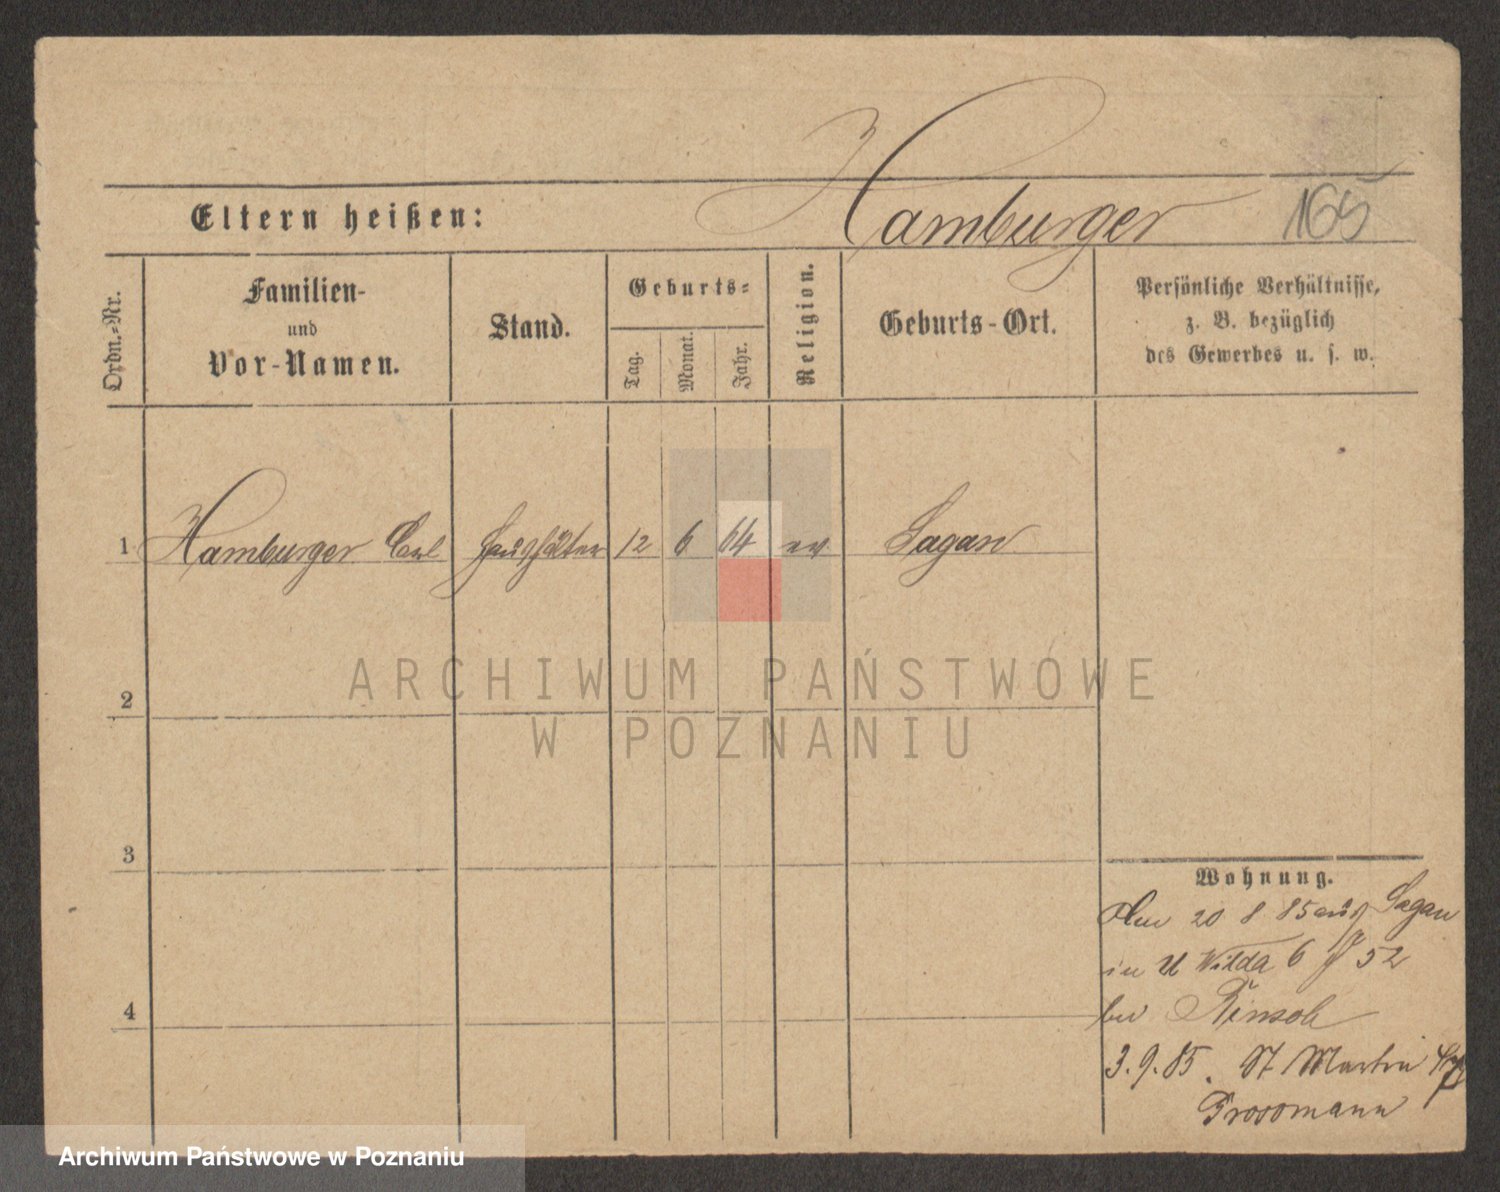 Hamburger
Eltern heißen:
165
Ordn.-Nr.
Familien-
und
Vor-Namen.
Stand.
Geburts-
Tag.
Monat.
Jahr.
Religion.
Geburts-Ort.
Persönliche Verhältnisse,
z. B. bezüglich
des Gewerbes u. s. w.
1 Hamburger Carl Haushälter 12 6 64 ev Sagan
2
3
4
Wohnung.
Am 20 8 85 aus Sagan
in U Wilda 6 52
bei
3.9.85. St Martin
Grossmann
ARCHIWUM PAŃSTWOWE
W POZNANIU
Archiwum Państwowe w Poznaniu